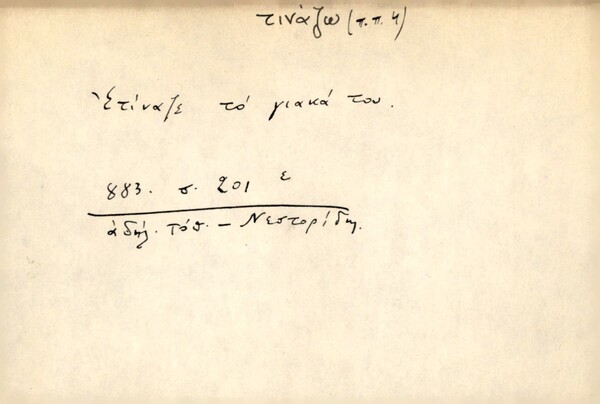 τινάζω (π.π. 4)
Ἐτίναζε τό γιακά του.
883. σ. 201 ε
ἀδήλ. τόπ. – Νεστορίδη.